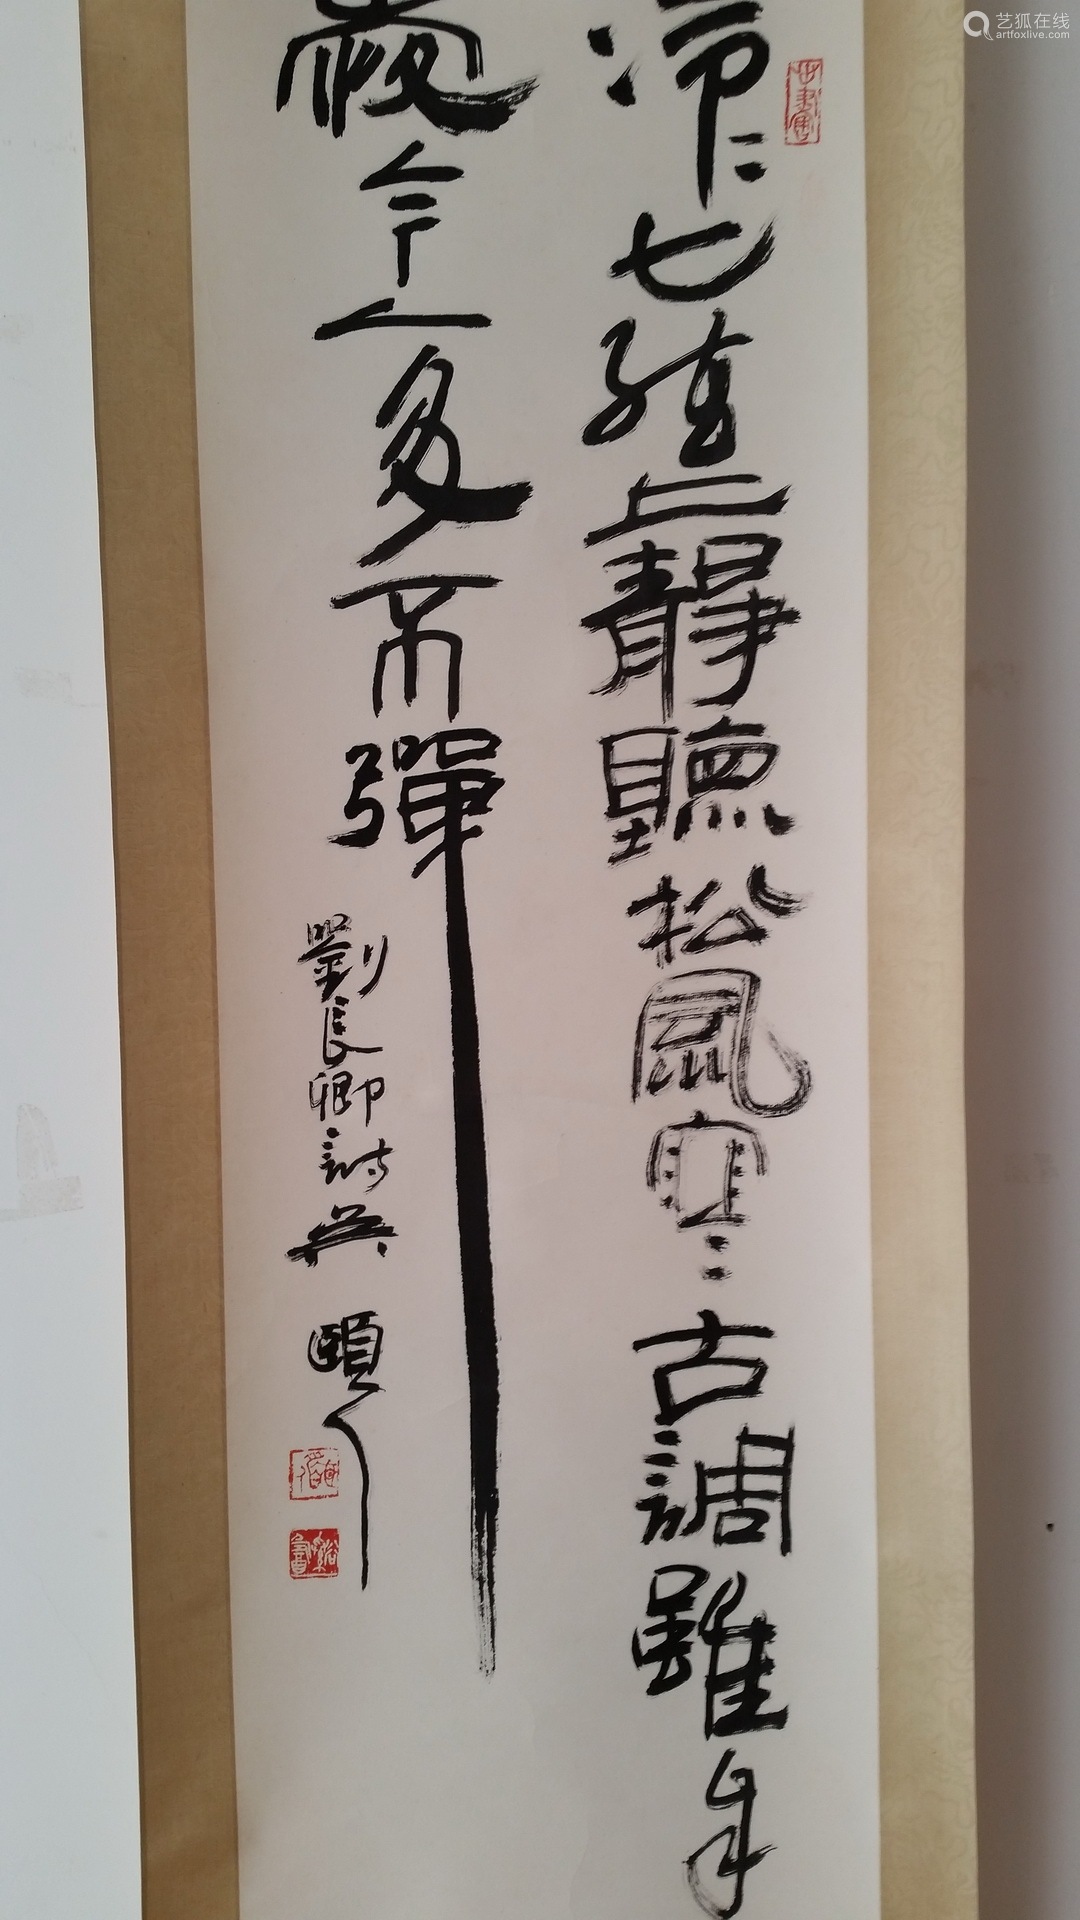 艺狐在线
artfoxlive.com
泠〻七絃上靜聽松風寒古調雖自
愛今人多不彈
劉長卿詩吳頤人